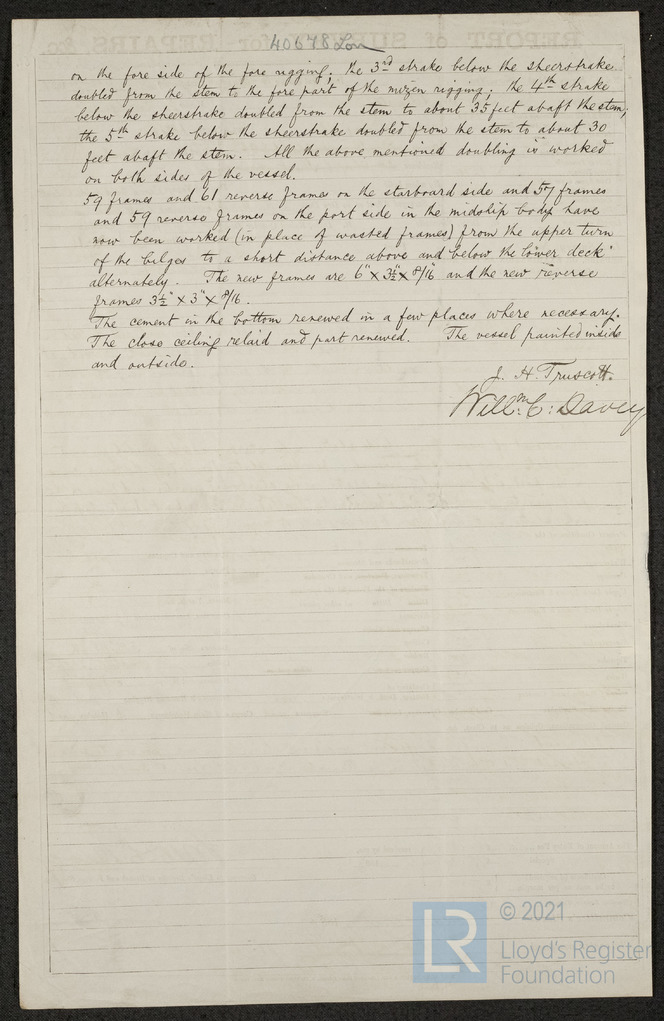 40678 Lon
on the fore side of the fore rigging; the 3rd strake below the sheerstrake
doubled from the stem to the fore part of the mizen rigging; the 4th strake
below the sheerstrake doubled from the stem to about 35 feet abaft the stem;
the 5th strake below the sheerstrake doubled from the stem to about 30
feet abaft the stem. All the above mentioned doubling is worked
on both sides of the vessel.
59 frames and 61 reverse frames on the starboard side and 57 frames
and 59 reverse frames on the port side in the midship body have
now been worked (in place of wasted frames) from the upper turn
of the bilges to a short distance above and below the lower deck
alternately. The new frames are 6" x 3½" x 8/16 and the new reverse
frames 3½" x 3" x 8/16.
The cement in the bottom renewed in a few places where necessary.
The close ceiling relaid and part renewed. The vessel painted inside
and outside.
J. H. Truscott.
Willm. C: Davey
LR
© 2021
Lloyd's Register
Foundation